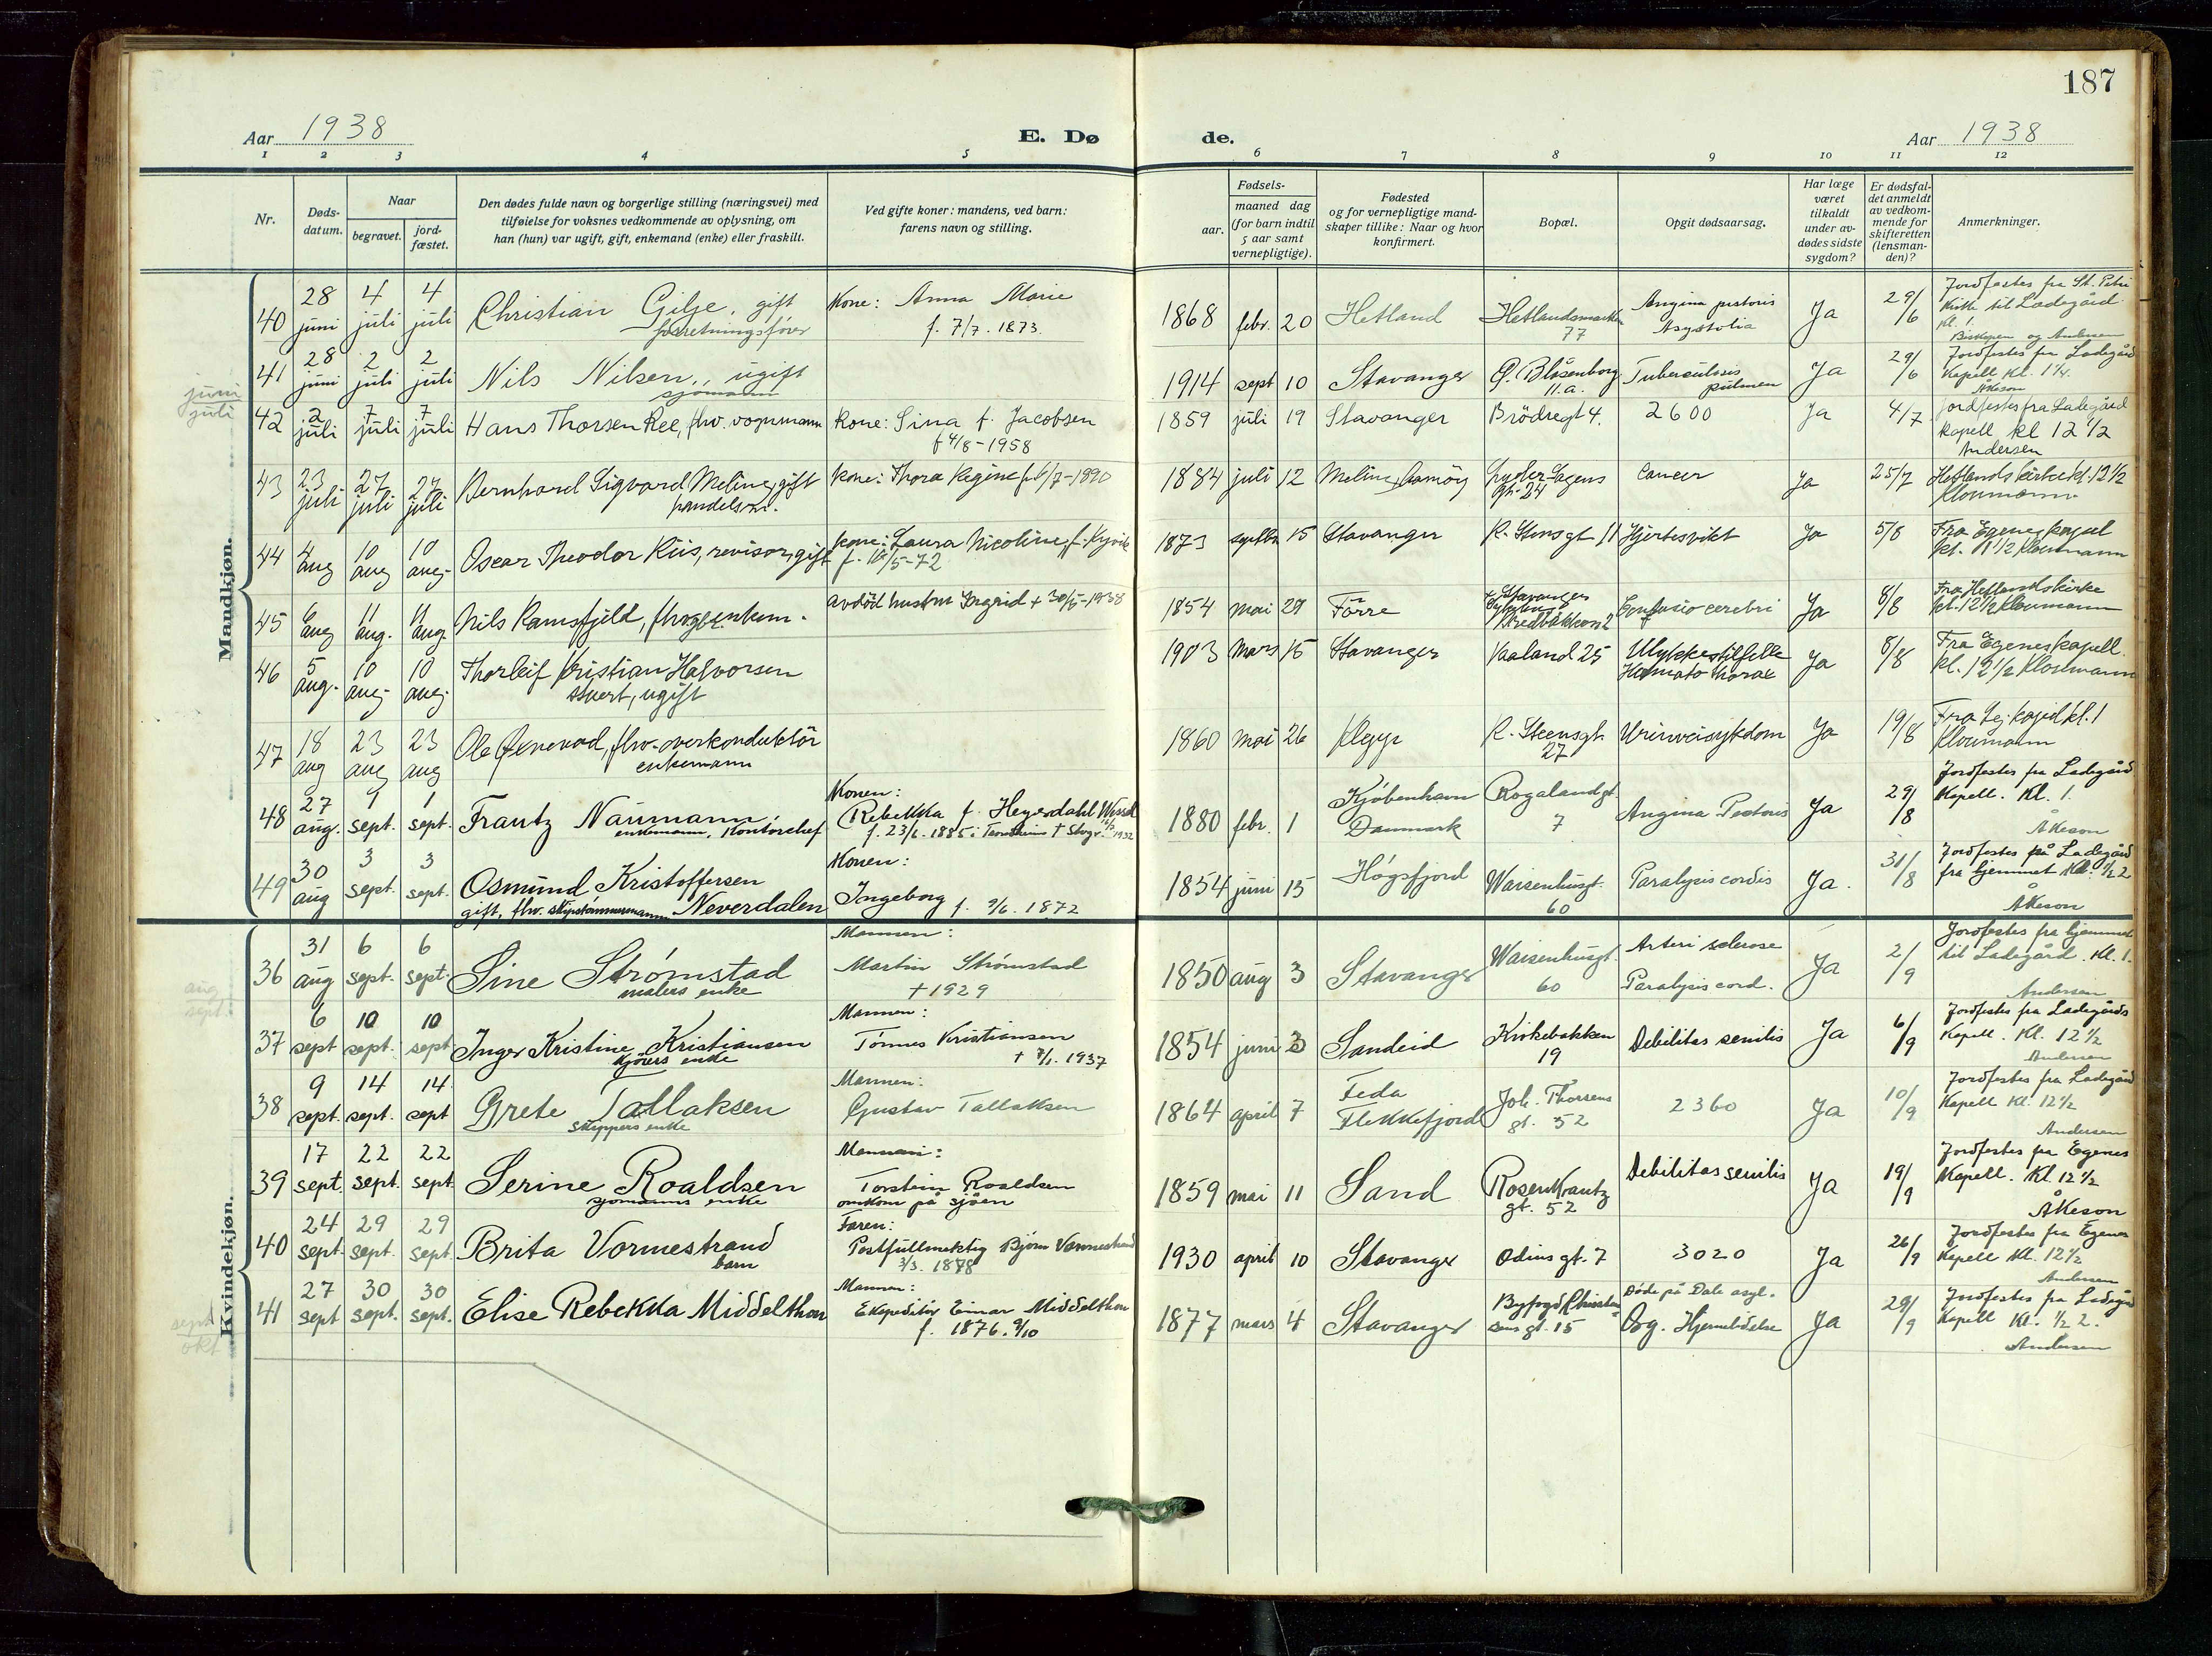 187
Aar 1938
E. Dø
de.
Aar 1938
1 2 3 4 5 6 7 8 9 10 11 12
Nr.
Døds-
datum.
Naar
begravet.
jord-
fæstet.
Den dødes fulde navn og borgerlige stilling (næringsvei) med
tilføielse for voksnes vedkommende av oplysning, om
han (hun) var ugift, gift, enkemand (enke) eller fraskilt.
Ved gifte koner: mandens, ved barn:
farens navn og stilling.
aar.
Fødsels-
maaned dag
(for barn indtil
5 aar samt
vernepligtige).
Fødested
og for vernepligtige mand-
skaper tillike: Naar og hvor
konfirmert.
Bopæl.
Opgit dødsaarsag.
Har læge
været
tilkaldt
under av-
dødes sidste
sygdom?
Er dødsfal-
det anmeldt
av vedkom-
mende for
skifteretten
(lensman-
den)?
Anmerkninger.
Mandkjøn.
juni
juli
40 28 juni 4 juli 4 juli Christian Gilje, gift
forretningsfører
Kone: Anna Marie
f. 7/7. 1873.
1868 febr. 20 Hetland Hetlandsmarken
77
Angina pectoris
Asystolia
Ja 29/6
Jordfestes fra St. Petri
Kirke til Ladegård
kl. 1.
Biskopen og Andersen
41 28 juni 2 juli 2 juli Nils Nilsen, ugift
sjømann
1914 sept 10 Stavanger Ø. Blåsenborg
11.a.
Tuberculosis
pulmon
Ja 29/6
Jordfestes fra Ladegård
Kapell kl. 1 1/4.
Åkeson
42 2 juli 7 juli 7 juli Hans Thorsen Ree, fhv. vognmann
kone: Sina f. Jacobsen
f 4/8 - 1958
1859 juli 19 Stavanger Brödregt 4. 2600 Ja 4/7
Jordfestes fra Ladegård
kapell kl 12 1/2
Andersen
43 23 juli 27 juli 27 juli Bernhard Sigvard Meling, gift
handelsm.
kone: Thora Regine f. 6/7-1890
1884 juli 12 Meling, Åmøy Lyder Sagens
gt. 24
Cancer Ja 25/7
Hetlandskirke kl. 12 1/2
Kloumann.
44 4 aug 10 aug 10 aug. Oscar Theodor Riis, revisor, gift
kone: Laura Nicoline, f. Kyvik
f. 16/5-72
1873 septbr 15 Stavanger K. Steensgt 11 Hjertesvikt Ja 5/8
Fra Egenes kapel
kl. 11 1/2 Kloumann
45 6 aug 11 aug. 11 aug. Nils Ramsfjeld,
avdöd hustru Ingrid + 30/5-1938
1854 mai 29 Förre Stavanger
Confusio cerebri Ja 8/8
Fra Hetlandskirke
kl. 12 1/2 Kloumann
46 5 aug. 10 aug. 10 aug. Thorleif Kristian Halvorsen
stuert, ugift
1903 Mars 15 Stavanger Vaaland 25 Ulykkestilfelle
Hæmato thorax
Ja 8/8
Fra Egeneskapell.
kl. 12 1/2 Kloumann
47 18 aug 23 aug 23 aug Ole Øvrevad, fhv. overkonduktör
enkemann
1860 Mai 26 Klepp K. Steensgt.
27
Urinveisykdom Ja 19/8
Fra Lg. kapel kl. 1
Kloumann
48 27 aug. 1 sept. 1 sept. Frantz Naumann,
enkemann, Kontorchef
Konen:
Rebekka f. Heyerdahl
f. 23/6. 1885 i 1932
1880 febr. 1 Kjøbenhavn
Danmark
Rogalandgt.
7
Angina Pectoris Ja 29/8
Jordfestes fra Ladegård
Kapell. Kl. 1.
Åkeson
49 30 aug 3 sept. 3 sept. Osmund Kristoffersen
gift, fhv. skipstømmermann Neverdalen
Konen:
Ingeborg f. 9/6. 1872
1854 juni 15 Høgsfjord Waisenhusgt.
60
Paralysis cordis Ja. 31/8
Jordfestes på Ladegård
fra hjemmet Kl. 1/2 2
Åkeson
Kvindekjøn.
aug
sept.
36 31 aug 6 sept. 6 sept. Sine Strømstad
malers enke
Mannen:
Martin Strømstad
+ 1929
1850 aug 3 Stavanger Waisenhusgt.
60
Arteri sclerose
Paralysis cord.
Ja 2/9
Jordfestes fra hjemmet
til Ladegård. Kl. 1.
Andersen
37 6 sept 10 sept. 10 sept Inger Kristine Kristiansen
kjørers enke
Mannen:
Tönnes Kristiansen
+ 7/1. 1937
1854 juni 3 Sandeid Kirkebakken
19
Debilitas senilis Ja 6/9
Jordfestes fra Ladegårds
Kapell. Kl. 12 1/2
Andersen
38 9 sept. 14 sept. 14 sept Grete Tallaksen
skippers enke
Mannen:
Gustav Tallaksen
1864 april 7 Feda
Flekkefjord
Joh. Thorsens
gt. 52
2360 Ja 10/9
Jordfestes fra Ladegård
Kapell Kl. 12 1/2
Andersen
39 17 sept. 22 sept. 22 sept. Serine Roaldsen
sjømanns enke
Mannen:
Torstein Roaldsen
omkom på sjøen
1859 mai 11 Sand Rosenkrantz
gt. 52
Debilitas senilis Ja 19/9
Jordfestes fra Egenes
Kapell. Kl 12 1/2
Åkeson
40 24 sept. 29 sept. 29 sept. Brita Vormestrand
barn
Faren:
Postfullmektig Bjørn Vormestrand
3/3. 1898
1930 april 10 Stavanger Odins gt. 7 3020 Ja 26/9
Jordfestes fra Egenes
Kapell Kl. 12 1/2
Andersen
sept
okt
41 27 sept 30 sept. 30 sept. Elise Rebekka Middelthon
Mannen:
Ekspeditør Einar Middelthon
f. 1876. 9/10
1877 mars 4 Stavanger Byfogd Christen-
sens gt. 15
Døde på Dale asyl.
Org. Hjernelidelse
Ja 29/9
Jordfestes fra Ladegård
Kapell Kl. 1/2 2.
Andersen